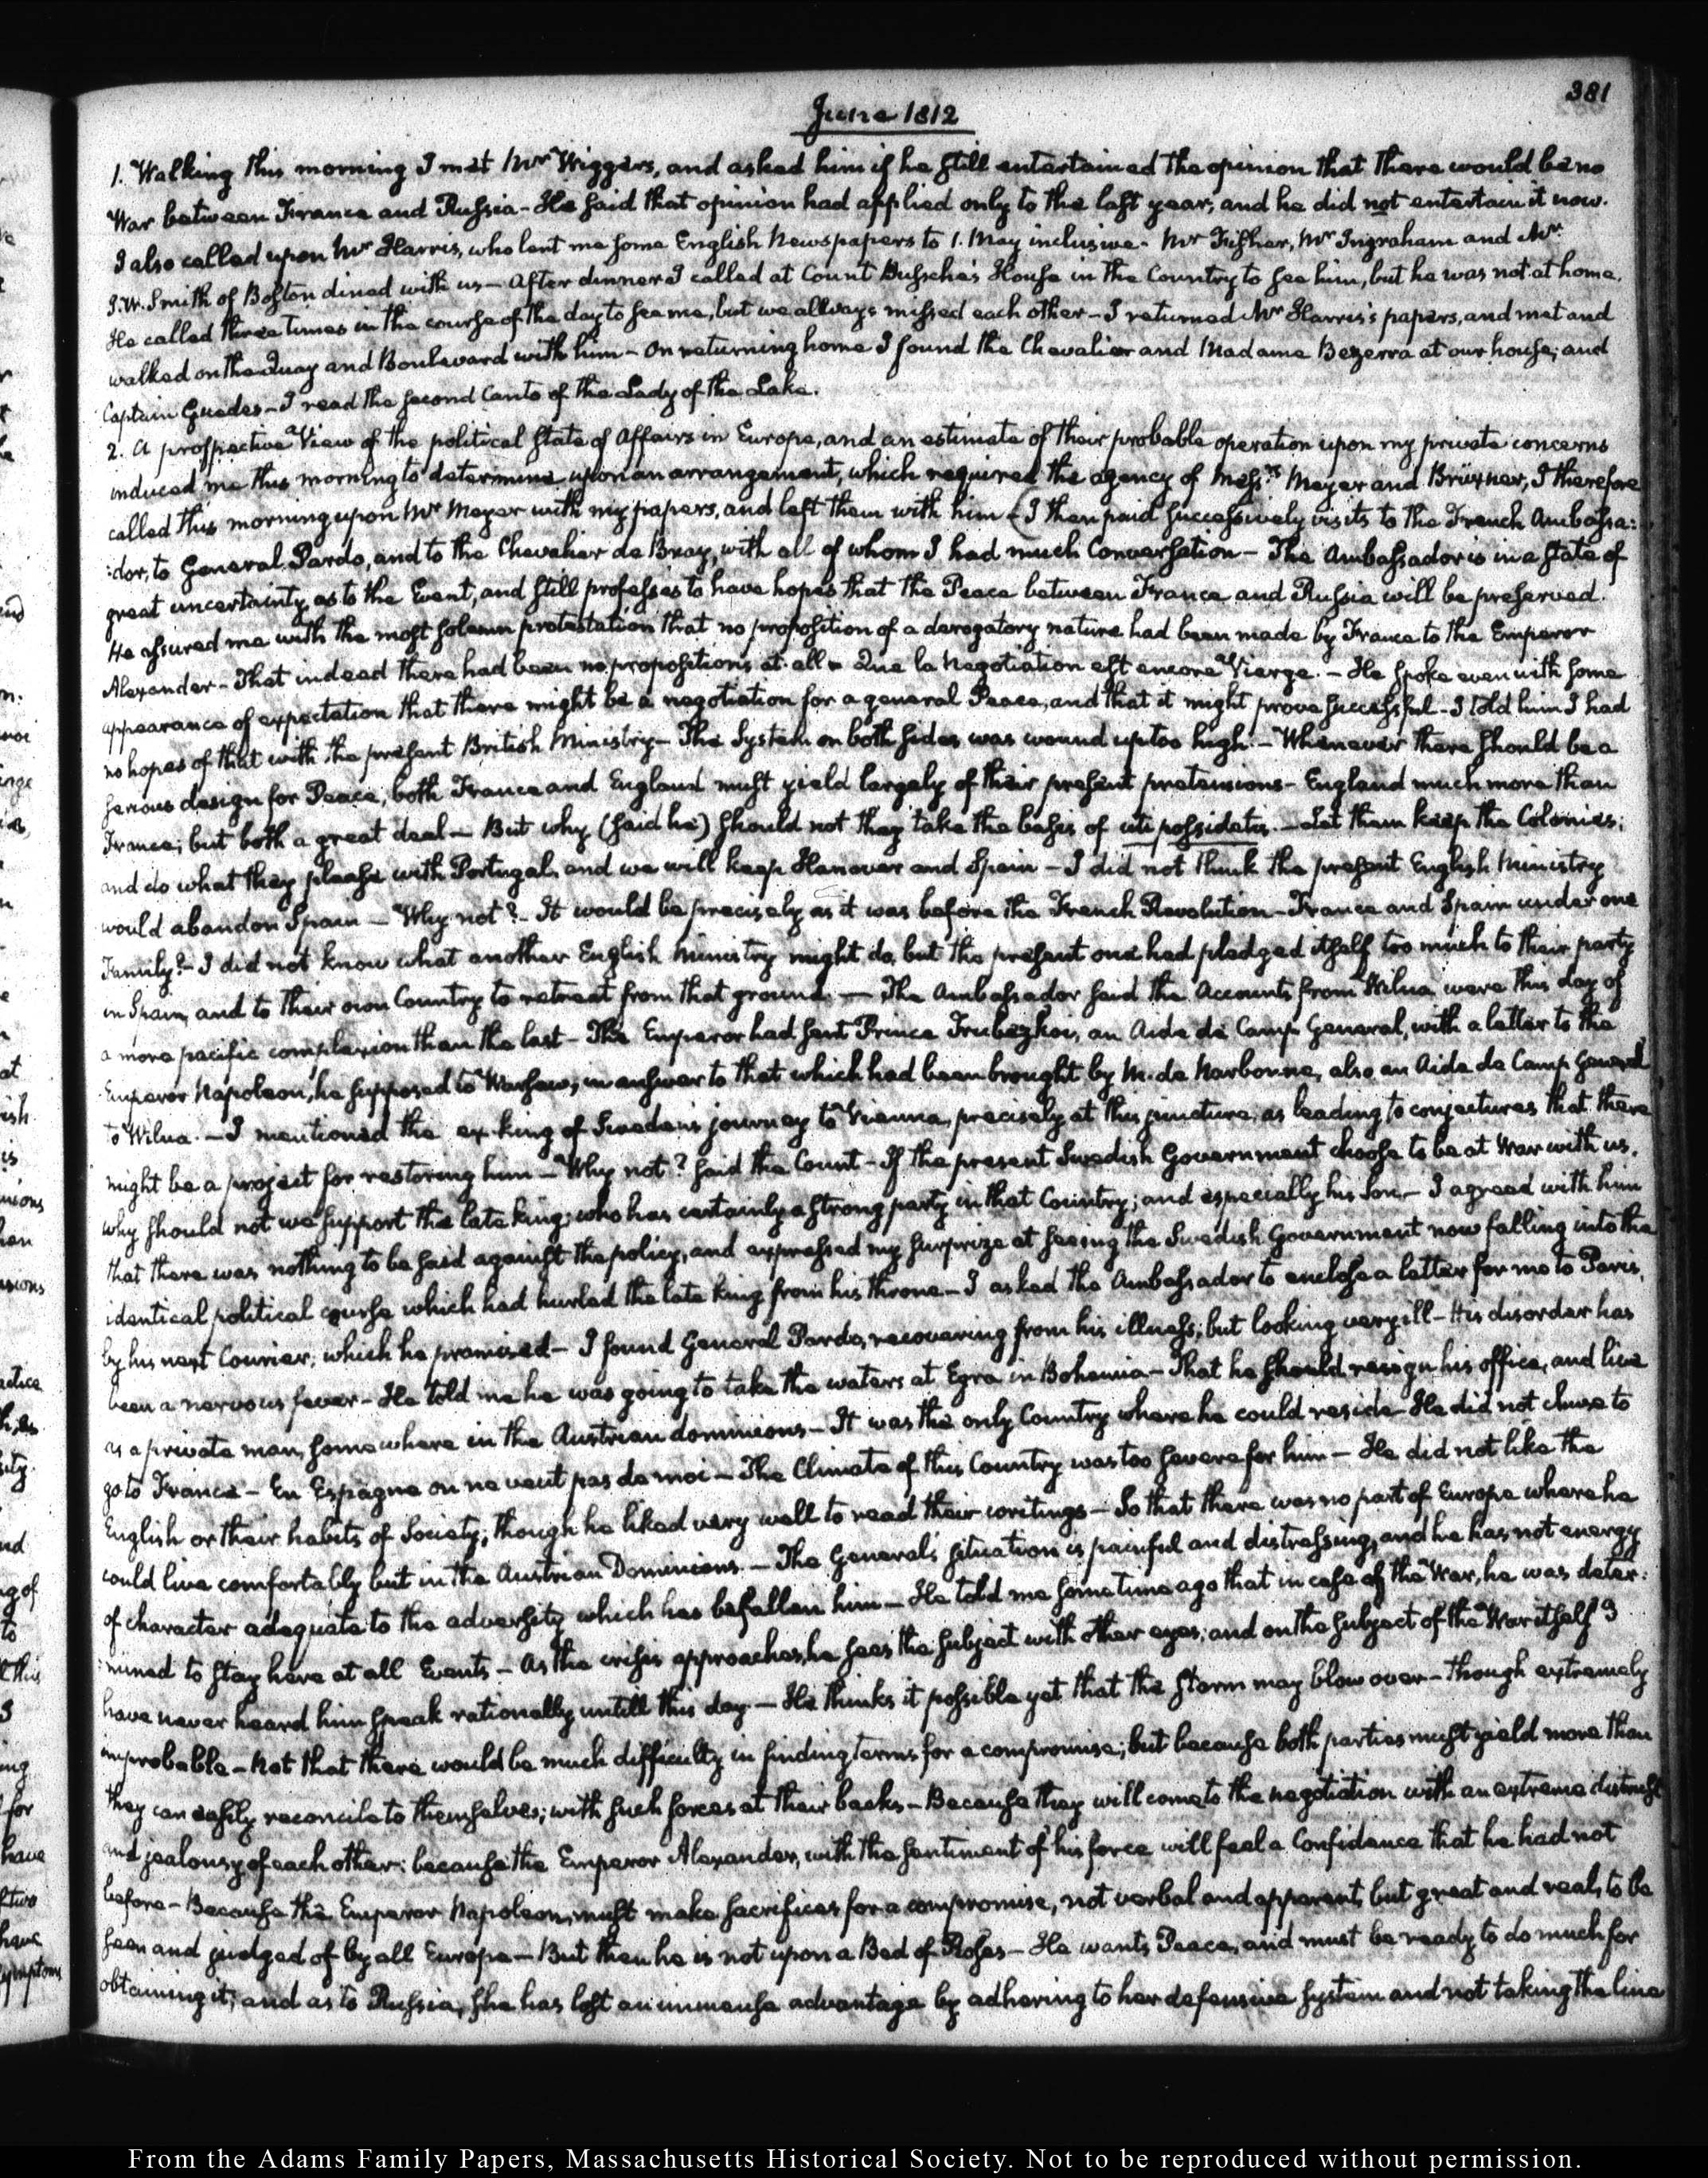 381
June 1812
1. Walking this morning I met Mr Wiggers, and asked him if he still entertained the opinion that there would be no
War between France and Russia - He said that opinion had applied only to the last year, and he did not entertain it now.
I also called upon Mr Harris, who lent me some English Newspapers to 1. May inclusive - Mr Fisher, Mr Ingraham and Mr
J. W. Smith of Boston dined with us - After dinner I called at Count Bussche's House in the Country to see him, but he was not at home.
He called three times in the course of the day to see me, but we allways missed each other - I returned Mr Harris's papers, and met and
walked on the Quay and Boulevard with him - On returning home I found the Chevalier and Madame Bezerra at our house, and
Captain Guedes - I read the second Canto of the Lady of the Lake.
2. A prospective View of the political state of Affairs in Europe, and an estimate of their probable operation upon my private concerns
induced me this morning to determine upon an arrangement, which required the agency of Messrs Meyer and Brüxner, I therefore
called this morning upon Mr Meyer with my papers, and left them with him - I then paid successively visits to the French Ambassa:
:dor, to General Pardo, and to the Chevalier de Bray, with all of whom I had much Conversation - The Ambassador is in a state of
great uncertainty as to the Event, and still professes to have hopes that the Peace between France and Russia will be preserved.
He assured me with the most solemn protestation that no proposition of a derogatory nature had been made by France to the Emperor
Alexander - That indeed there had been no propositions at all - Que la Negotiation est encore Vierge. - He spoke even with some
appearance of expectation that there might be a negotiation for a general Peace, and that it might prove successful - I told him I had
no hopes of that with the present British Ministry - The System on both sides was wound up too high. - Whenever there should be a
serious design for Peace, both France and England must yield largely of their present pretensions - England much more than
France; but both a great deal - But why (said he) should not they take the basis of uti possidetis. - Let them keep the Colonies;
and do what they please with Portugal, and we will keep Hanover and Spain - I did not think the present English Ministry
would abandon Spain - Why not? - It would be precisely as it was before the French Revolution - France and Spain under one
Family? - I did not know what another English Ministry might do, but the present one had pledged itself too much to their party
in Spain, and to their own Country to retreat from that ground. - The Ambassador said the Accounts from Wilna were this day of
a more pacific complexion than the last - The Emperor had sent Prince Trubezkoi, an Aide de Camp General, with a letter to the
Emperor Napoleon, he supposed to Warsaw, in answer to that which had been brought by M. de Narbonne, also an Aide de Camp General
to Wilna. - I mentioned the ex-king of Sweden's journey to Vienna, precisely at this juncture, as leading to conjectures that there
might be a project for restoring him - Why not? said the Count - If the present Swedish Government choose to be at War with us,
why should not we support the late king, who has certainly a strong party in that Country; and especially his Son - I agreed with him
that there was nothing to be said against the policy, and expressed my surprize at seeing the Swedish Government now falling into the
identical political course which had hurled the late king from his throne - I asked the Ambassador to enclose a letter for me to Paris,
by his next Courier, which he promised - I found General Pardo, recovering from his illness; but looking very ill - His disorder has
been a nervous fever - He told me he was going to take the waters at Egra in Bohemia - That he should resign his office, and live
as a private man, somewhere in the Austrian dominions - It was the only Country where he could reside - He did not chuse to
go to France - En Espagne on ne veut pas de moi - The Climate of this Country was too severe for him - He did not like the
English or their habits of Society; though he liked very well to read their writings - So that there was no part of Europe where he
could live comfortably but in the Austrian Dominions. - The General's situation is painful and distressing, and he has not energy
of character adequate to the adversity which has befallen him - He told me some time ago that in case of the War, he was deter:
:mined to stay here at all Events - As the crisis approaches, he sees the subject with other eyes; and on the subject of the War itself I
have never heard him speak rationally untill this day - He thinks it possible yet that the storm may blow over - though extremely
improbable - Not that there would be much difficulty in finding terms for a compromise; but because both parties must yield more than
they can easily reconcile to themselves; with such forces at their backs - Because they will come to the negotiation with an extreme distrust
and jealousy of each other: because the Emperor Alexander, with the sentiment of his force will feel a Confidence that he had not
before - Because the Emperor Napoleon, must make sacrifices for a compromise, not verbal and apparent, but great and real, to be
seen and judged of by all Europe - But then he is not upon a Bed of Roses - He wants Peace, and must be ready to do much for
obtaining it; and as to Russia, she has lost an immense advantage by adhering to her defensive system and not taking the line
From the Adams Family Papers, Massachusetts Historical Society. Not to be reproduced without permission.